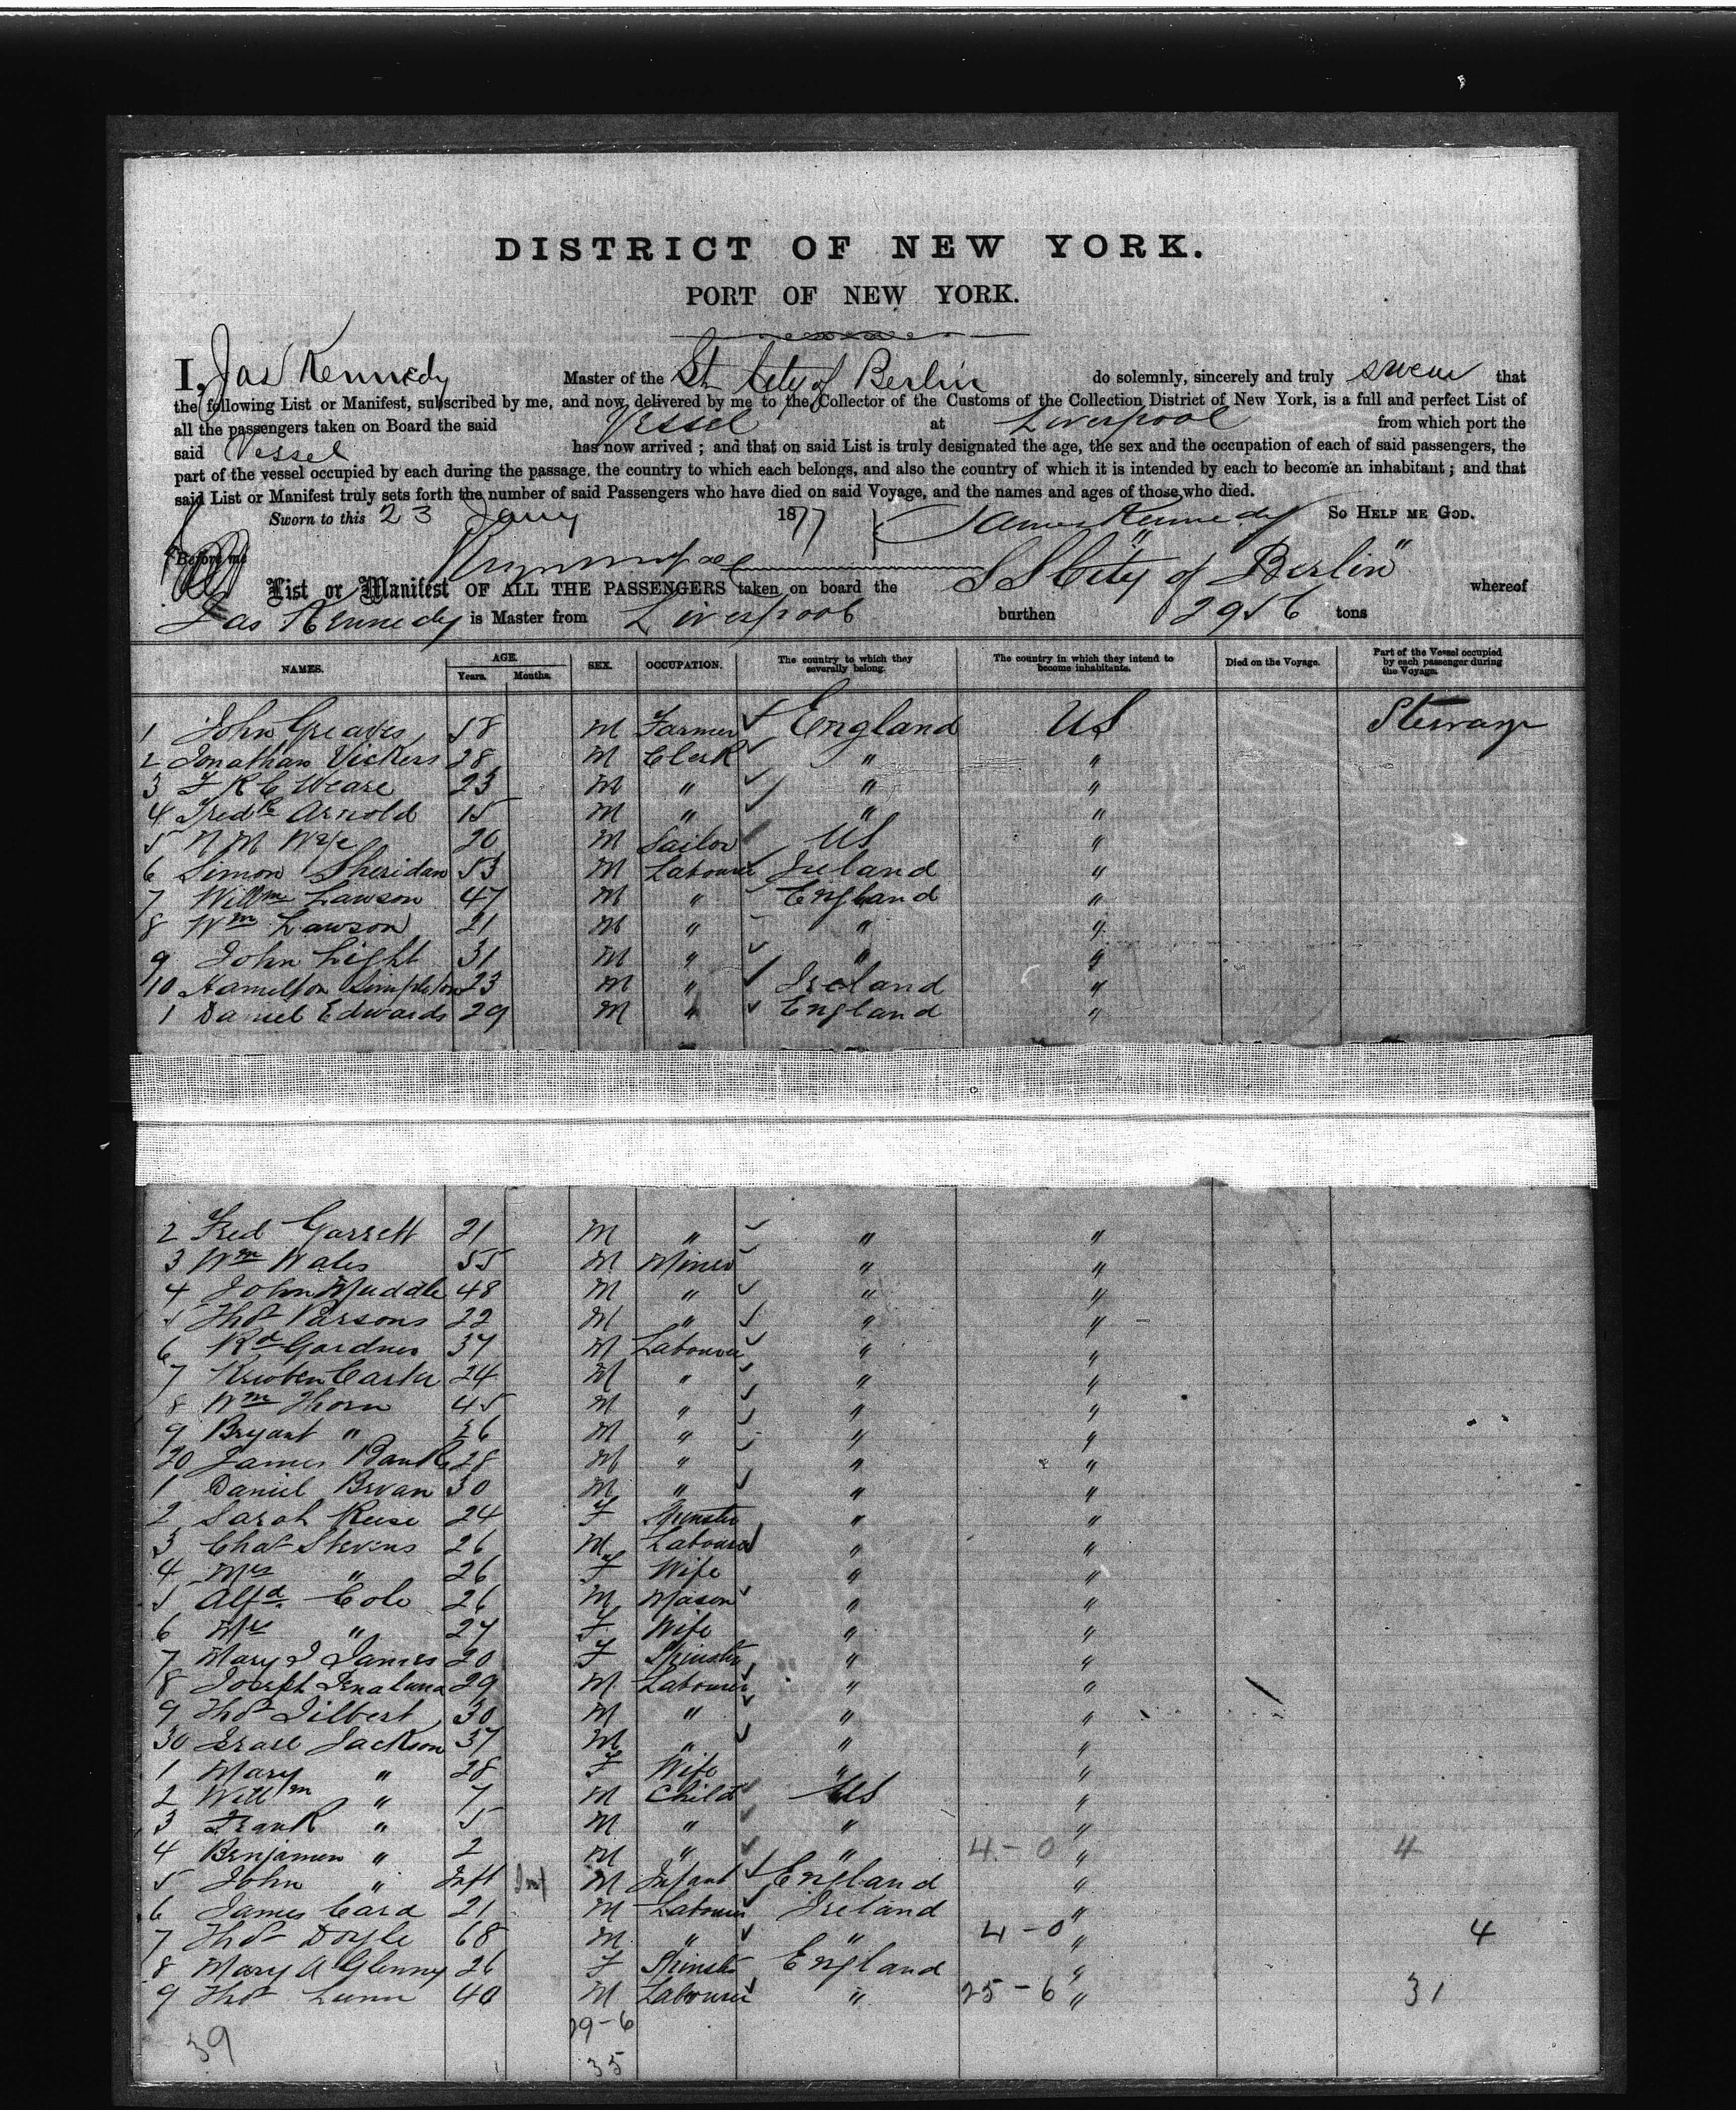 DISTRICT OF NEW YORK.
PORT OF NEW YORK.
I, Jas Kennedy Master of the St. City of Berlin do solemnly, sincerely and truly swear that
the following List or Manifest, subscribed by me, and now delivered by me to the Collector of the Customs of the Collection District of New York, is a full and perfect List of
all the passengers taken on Board the said Vessel at Liverpool from which port the
said Vessel has now arrived ; and that on said List is truly designated the age, the sex and the occupation of each of said passengers, the
part of the vessel occupied by each during the passage, the country to which each belongs, and also the country of which it is intended by each to become an inhabitant ; and that
said List or Manifest truly sets forth the number of said Passengers who have died on said Voyage, and the names and ages of those who died.
Sworn to this 23 Jany 1877 James Kennedy SO HELP ME GOD.
Before me
List or Manifest OF ALL THE PASSENGERS taken on board the SS City of "Berlin" whereof
Jas Kennedy is Master from Liverpool burthen 2956 tons
NAMES. AGE. Years. Months. SEX. OCCUPATION. The country to which they severally belong. The country in which they intend to become inhabitants. Died on the Voyage. Part of the Vessel occupied by each passenger during the Voyage.
1 John Greaves 58 M Farmer England US Steerage
2 Jonathan Vickers 28 M Clerk " "
3 F R C Weare 23 M " " "
4 Fredk Arnold 15 M " " "
5 N M 20 M Sailor US "
6 Simon Sheridan 53 M Labourer Ireland "
7 Willm Lawson 47 M " England "
8 Wm Lawson 21 M " " "
9 John Light 31 M " " "
10 Hamilton Simpleton 23 M " Ireland "
1 Daniel Edwards 29 M " England "
2 Fred Garrett 21 M " " "
3 Wm Wales 55 M Miner " "
4 John Muddle 48 M " " "
5 Thos Parsons 22 M " " "
6 Rd Gardner 37 M Labourer " "
7 Reuben Carter 24 M " " "
8 Wm Thorn 45 M " " "
9 Bryant " 26 M " " "
20 James Bank 28 M " " "
1 Daniel Bevan 30 M " " "
2 Sarah Reese 24 F Spinster " "
3 Chas Stevens 26 M Labourer " "
4 Mrs " 26 F Wife " "
5 Alfd. Cole 26 M Mason " "
6 Mrs " 27 F Wife " "
7 Mary J James 20 F Spinster " "
8 Joseph 29 M Labourer " "
9 Thos Gilbert 30 M " " "
30 Israel Jackson 37 M " " "
1 Mary " 28 F Wife " "
2 Willm " 7 M Child US "
3 Frank " 5 M " " "
4 Benjamin " 2 M " " 4-0 " 4
5 John " Inft Inf M Infant England "
6 James Card 21 M Labourer Ireland "
7 Thos Doyle 68 M " " 4-0 " 4
8 Mary A Glenny 26 F Spinster England "
9 Thos Lunn 40 M Labourer " 25-6 " 31
29-6
39 35